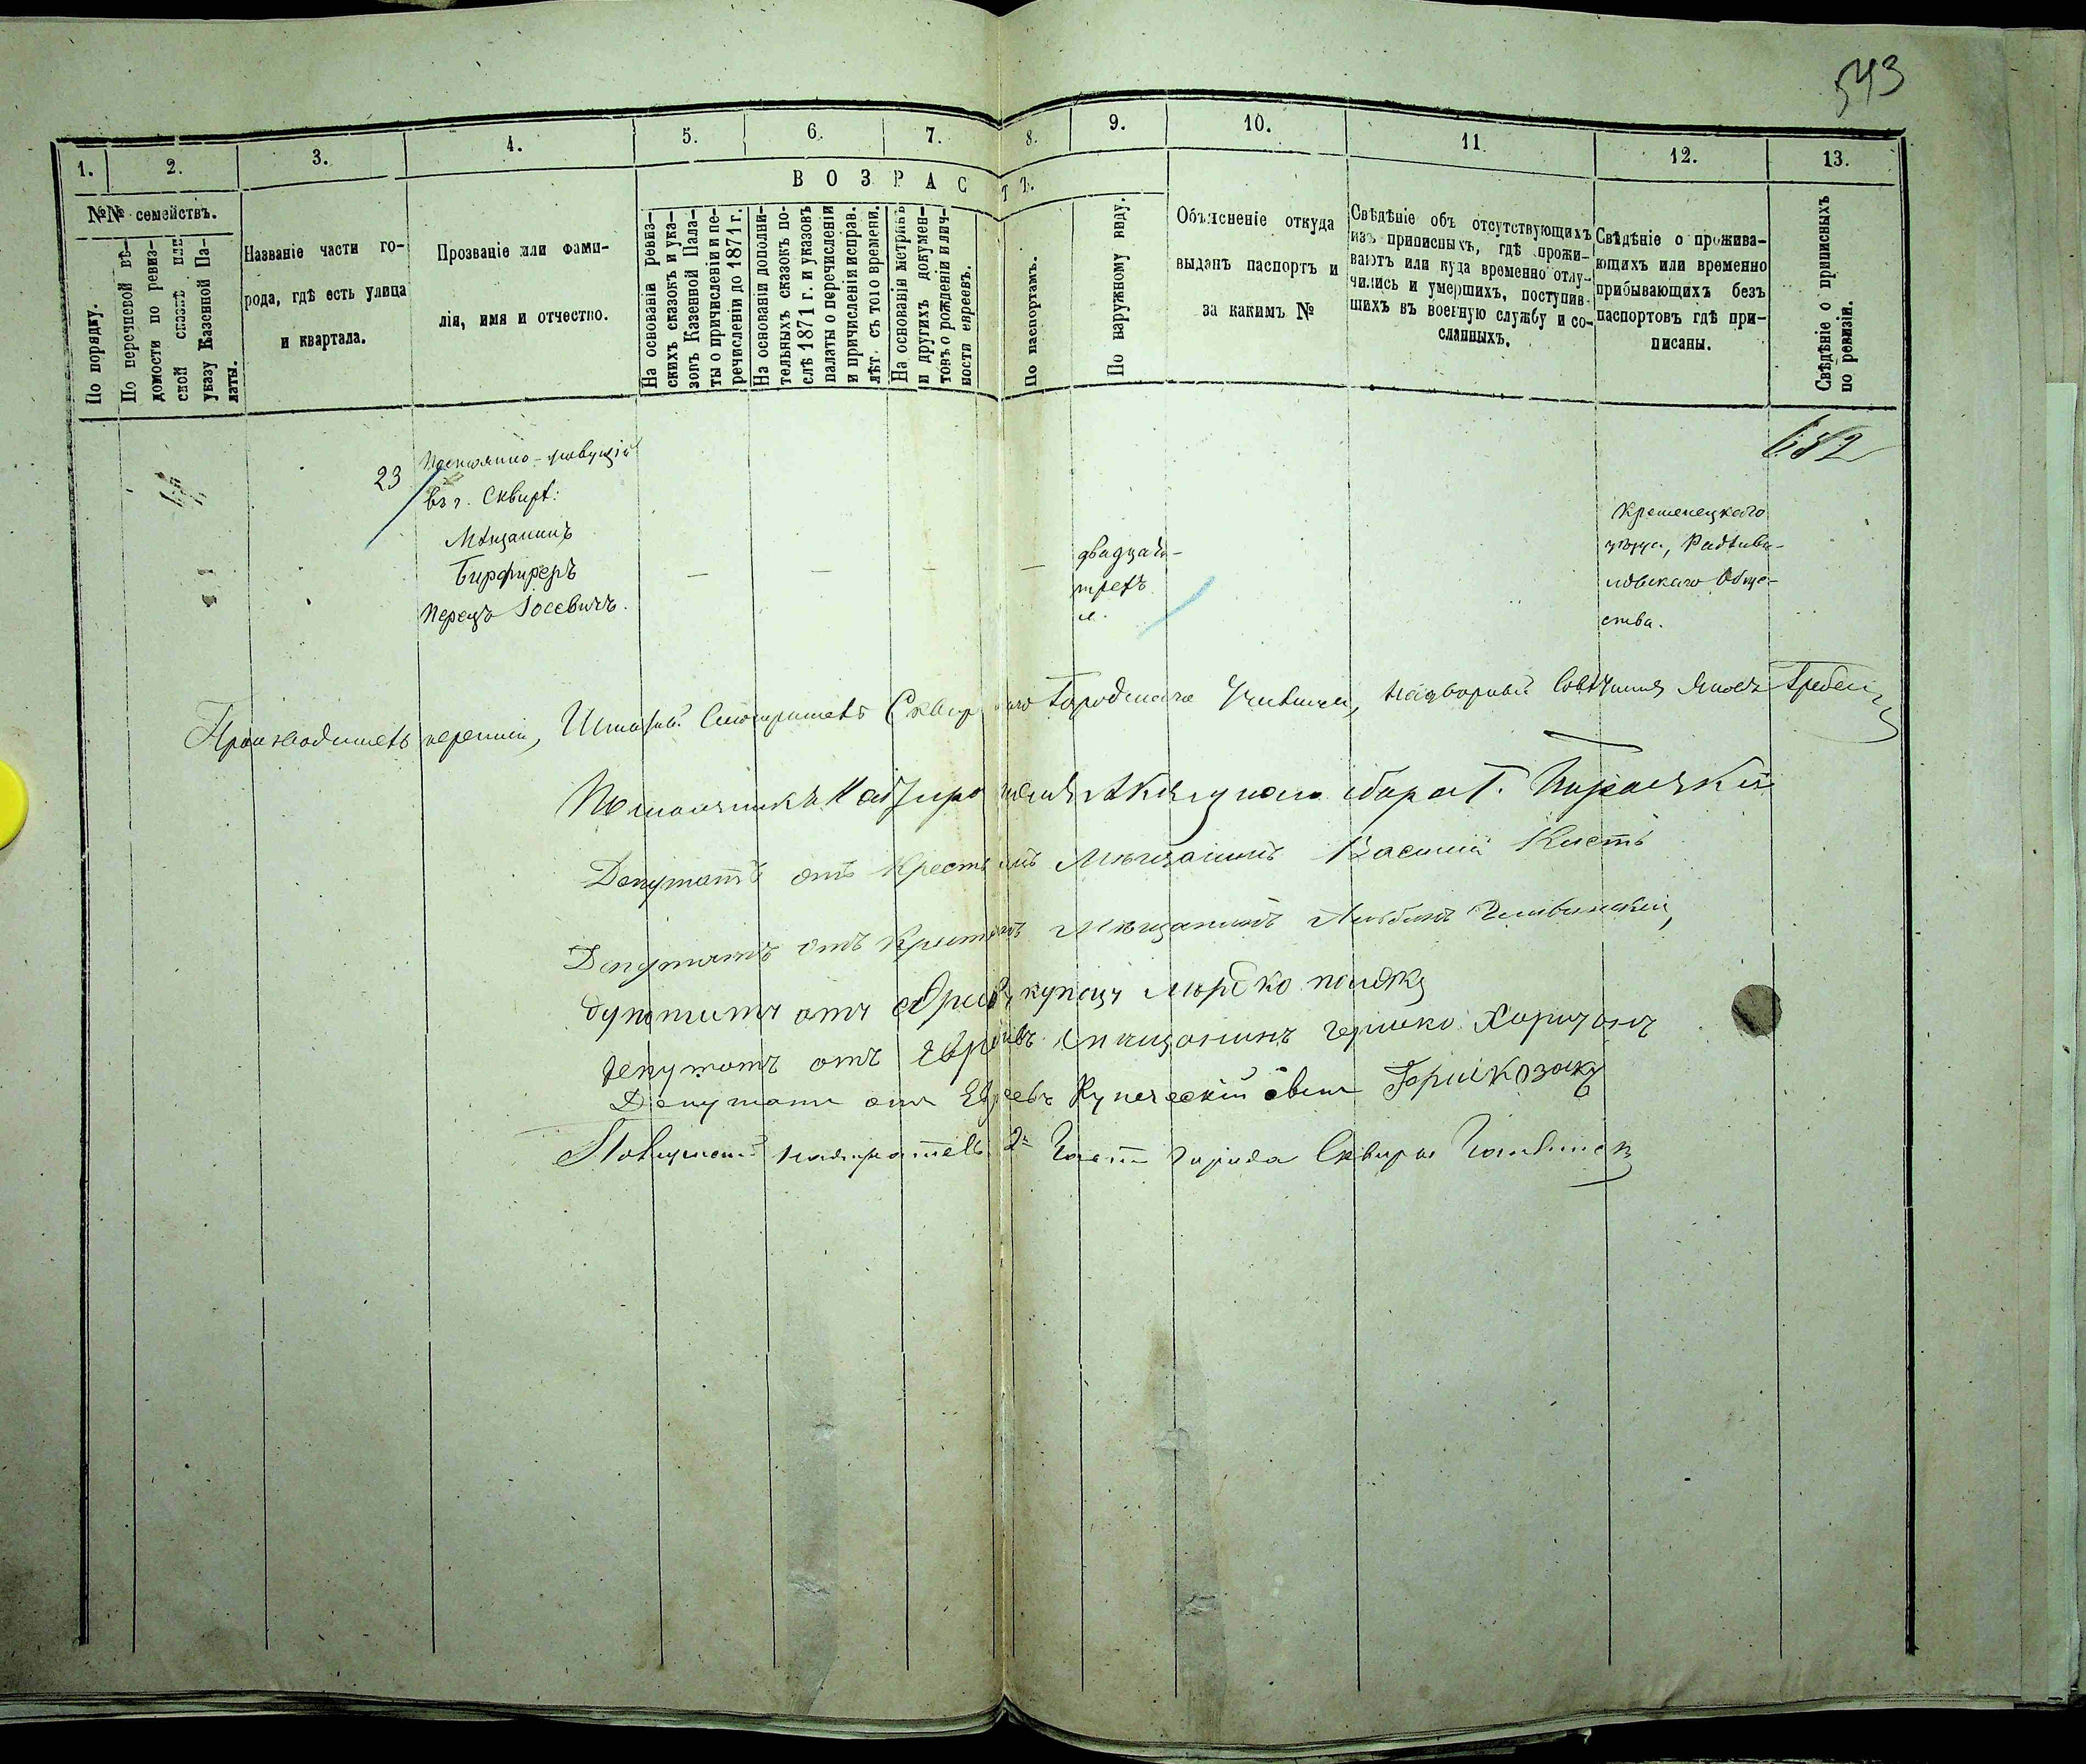 543
1. 2. 3. 4. 5. 6. 7. 8. 9. 10. 11. 12. 13.
ВОЗРАСТЪ.
№№ семействъ.
По порядку.
По перечневой вѣ-
домости по ревиз-
ской сказкѣ или
указу Казенной Па-
латы.
Названіе части го-
рода, гдѣ есть улица
и квартала.
Прозваніе или фами-
лія, имя и отчество.
На основаніи ревиз-
скихъ сказокъ и ука-
зовъ Казенной Пала-
ты о причисленіи и пе-
речисленіи до 1871 г.
На основаніи дополни-
тельныхъ сказокъ по-
слѣ 1871 г. и указовъ
палаты о перечисленіи
и причисленіи исправ.
лѣт. съ того времени.
На основаніи метрикъ
и другихъ докумен-
товъ о рожденіи и лич-
ности евреевъ.
По паспортамъ.
По наружному виду.
Объясненіе откуда
выданъ паспортъ и
за какимъ №
Свѣдѣніе объ отсутствующихъ
изъ приписныхъ, гдѣ прожи-
ваютъ или куда временно отлу-
чились и умершихъ, поступив-
шихъ въ военную службу и со-
сланныхъ.
Свѣдѣніе о прожива-
ющихъ или временно
прибывающихъ безъ
паспортовъ гдѣ при-
писаны.
Свѣдѣніе о приписныхъ
по ревизіи.
682
23
Постоянно-живущій
въ г. Сквирѣ:
Мѣщанинъ
Бирфиреръ
Перецъ Іосевичъ.
— — — —
двадцать-
трехъ
л.
Кременецкаго
уѣзда, Радзиви-
ловскаго Обще-
ства.
Производитель переписи, Штатн. Смотритель Сквирскаго Городскаго Училища, Надворный Совѣтникъ Яковъ
Помощникъ Надзирателя Акцизнаго сбора Г.
Депутатъ отъ Крестьянъ Мѣщанинъ Василій Кисть
Депутатъ отъ Крестьянъ Мѣщанинъ
дупотитъ отъ Евреевъ купецъ Мюрдко
Депутатъ отъ Евреевъ Мещанинъ Гершко
Депутатъ отъ Евреевъ Купеческій Гершкозакъ
надзиратель 2й Части города Сквиры